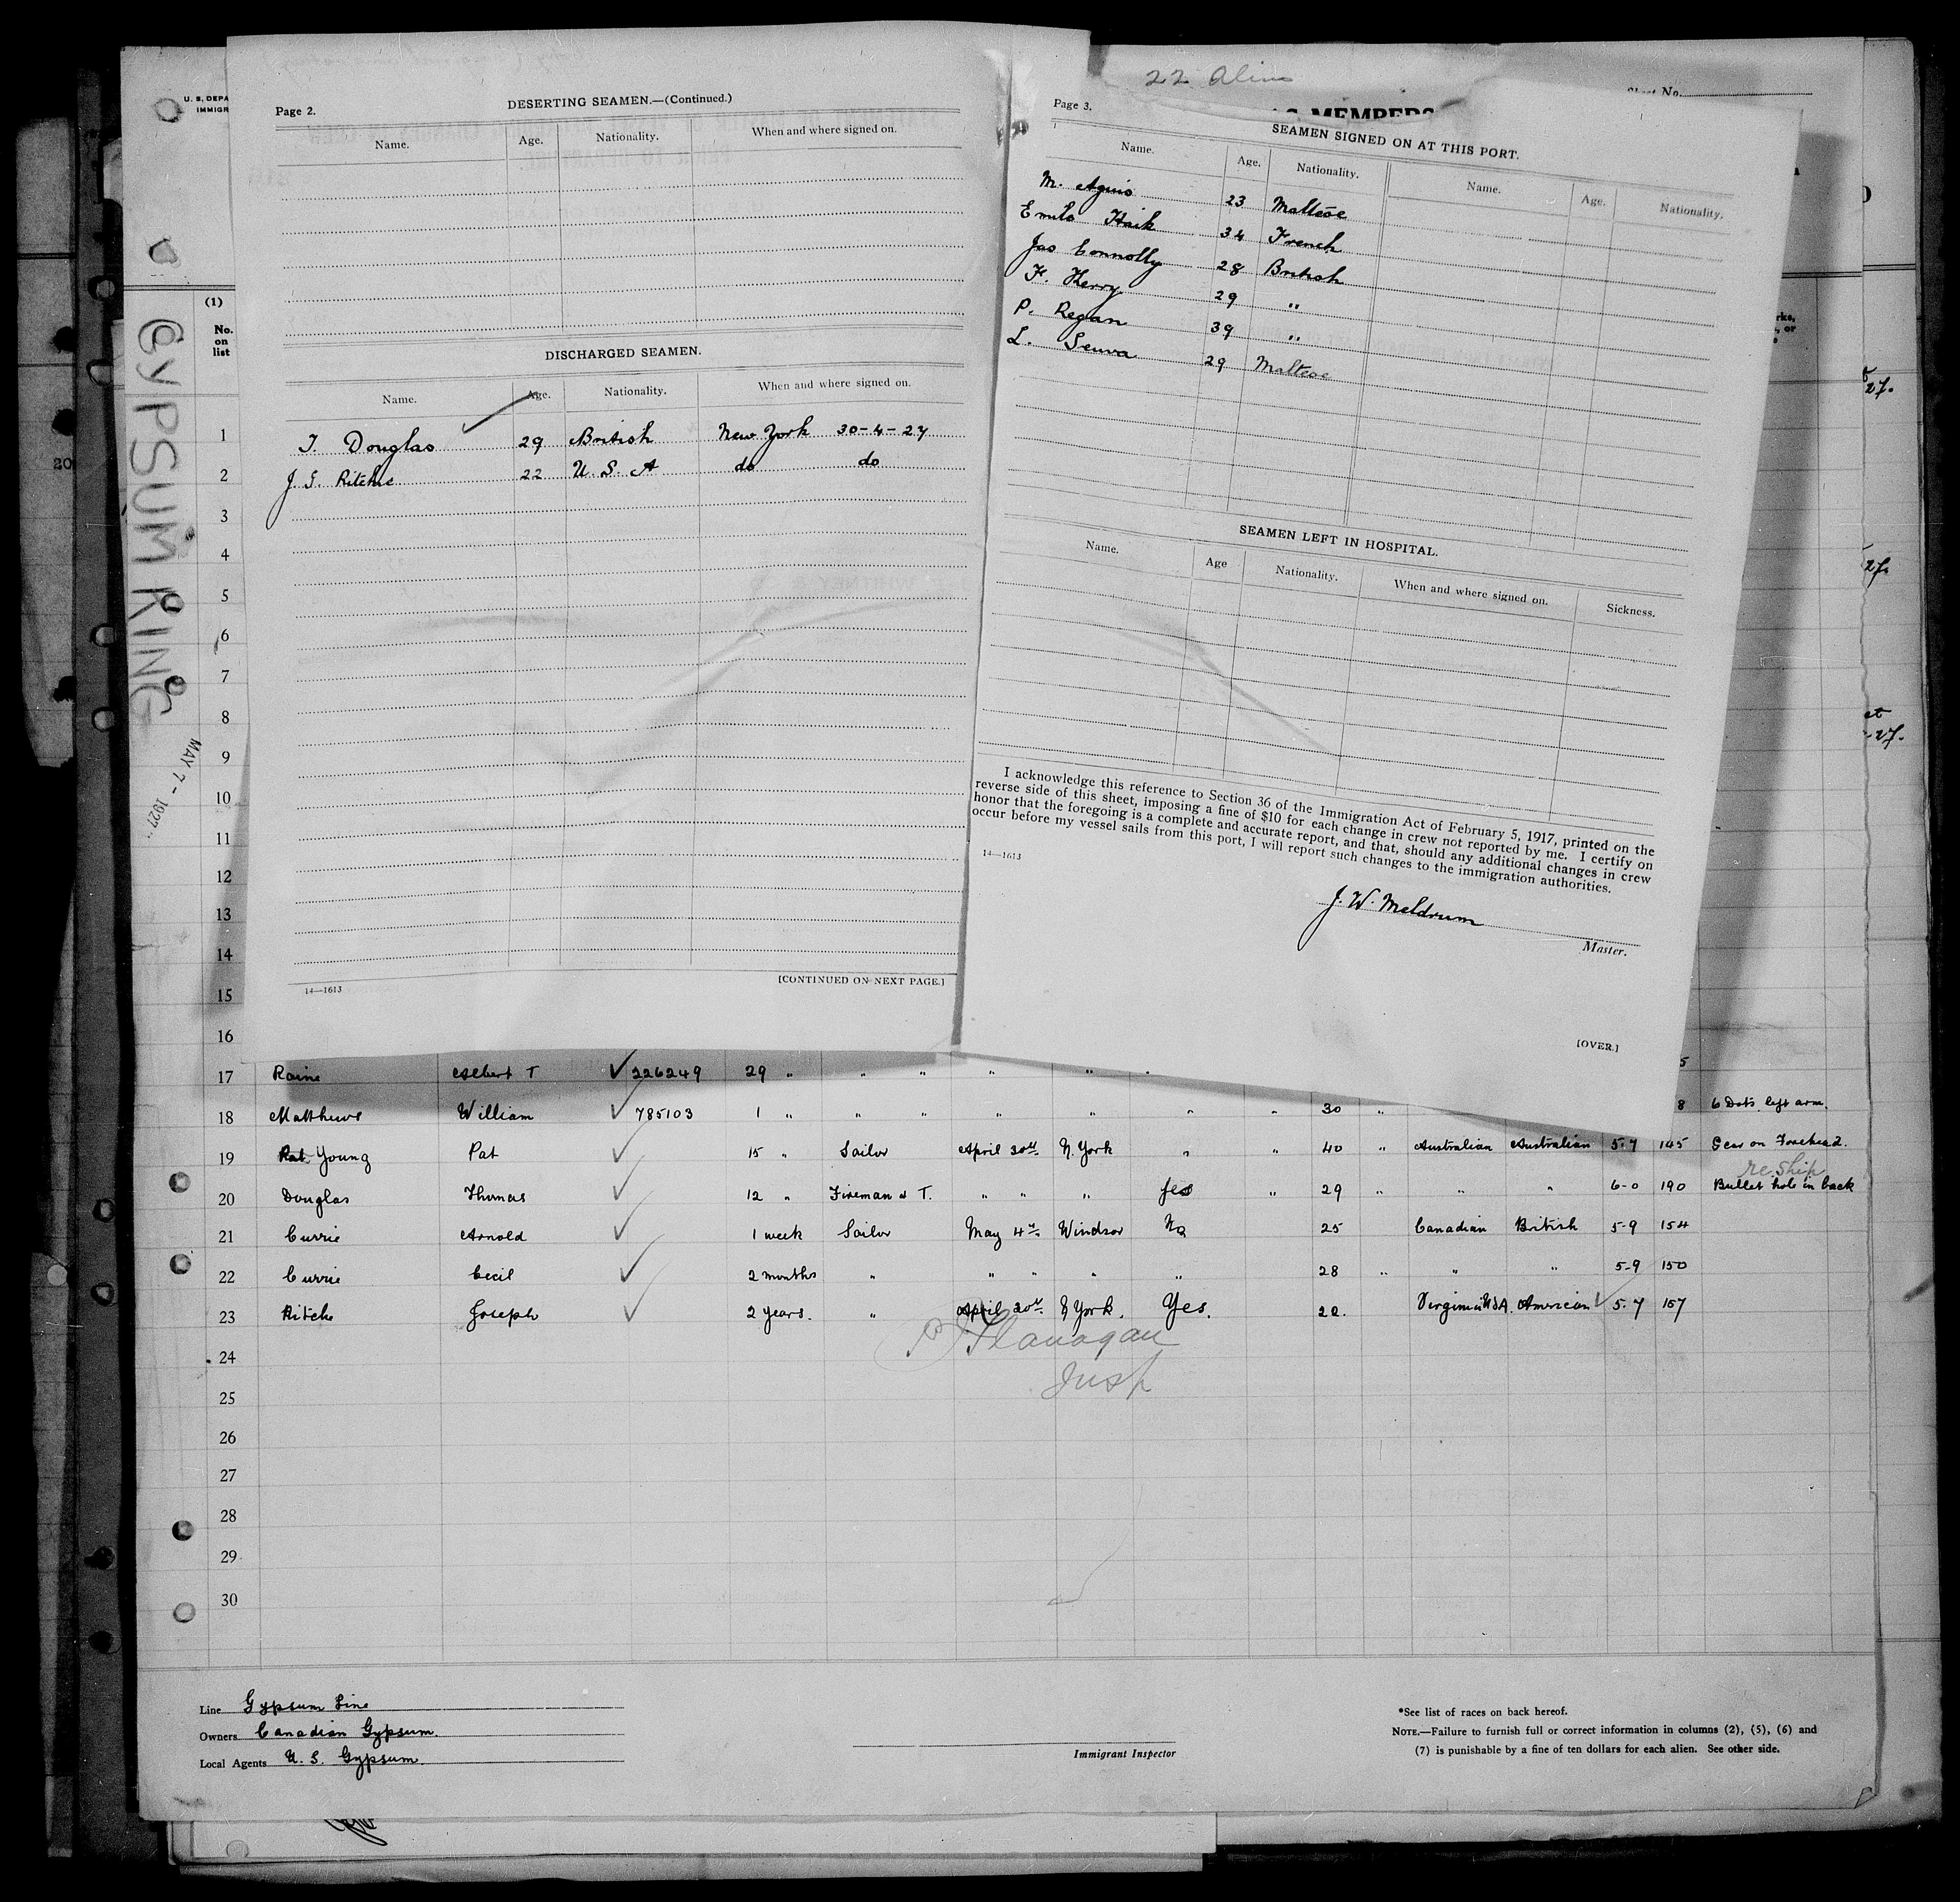 22
Sheet No.
U. S. DEPA
IMMIGR
Page 2.
DESERTING SEAMEN.—(Continued.)
Name. Age. Nationality. When and where signed on.
DISCHARGED SEAMEN.
Name. Age. Nationality. When and where signed on.
T. Douglas 29 British New York 30-4-27
J. G. Ritchie 22 U. S. A do do
14—1613
[CONTINUED ON NEXT PAGE.]
Page 3.
MEMBERS
SEAMEN SIGNED ON AT THIS PORT.
Name. Age. Nationality. Name. Age. Nationality.
M. 23 Maltese
Haik 34 French
Jas Connolly 28 British
F. Kerry 29 "
P. Regan 39 "
L. 29 Maltese
SEAMEN LEFT IN HOSPITAL.
Name. Age Nationality. When and where signed on. Sickness.
I acknowledge this reference to Section 36 of the Immigration Act of February 5, 1917, printed on the
reverse side of this sheet, imposing a fine of $10 for each change in crew not reported by me. I certify on
honor that the foregoing is a complete and accurate report, and that, should any additional changes in crew
occur before my vessel sails from this port, I will report such changes to the immigration authorities.
14—1613
J. W. Meldrum
Master.
[OVER.]
GYPSUM KING
MAY 7 - 1927
(1)
No.
on
list
1
2
3
4
5
6
7
8
9
10
11
12
13
14
15
16
17 Raine Albert T 226249 29 " " " " " "
18 Matthews William 785103 1 " " " " " " " 30 " 8 6 Dots left arm.
19 Young Pat 15 " Sailor April 30th N. York " " 40 " Australian Australian 5-7 145 Scar on Forehead.
re ship
20 Douglas Thomas 12 " Fireman & T. " " " Yes " 29 " " " 6-0 190 Bullet hole in back
21 Currie Arnold 1 week Sailor May 4th Windsor No 25 Canadian British 5-9 154
22 Currie Cecil 2 months " " " " " 28 " " " 5-9 150
23 Ritchie Joseph 2 years. " April 30th N York. Yes. 22. Virginia USA. American 5-7 157
24 Flanagan
25 Insp
26
27
28
29
30
Line Gypsum Line
Owners Canadian Gypsum.
Local Agents U. S. Gypsum.
Immigrant Inspector
*See list of races on back hereof.
NOTE.—Failure to furnish full or correct information in columns (2), (5), (6) and
(7) is punishable by a fine of ten dollars for each alien. See other side.